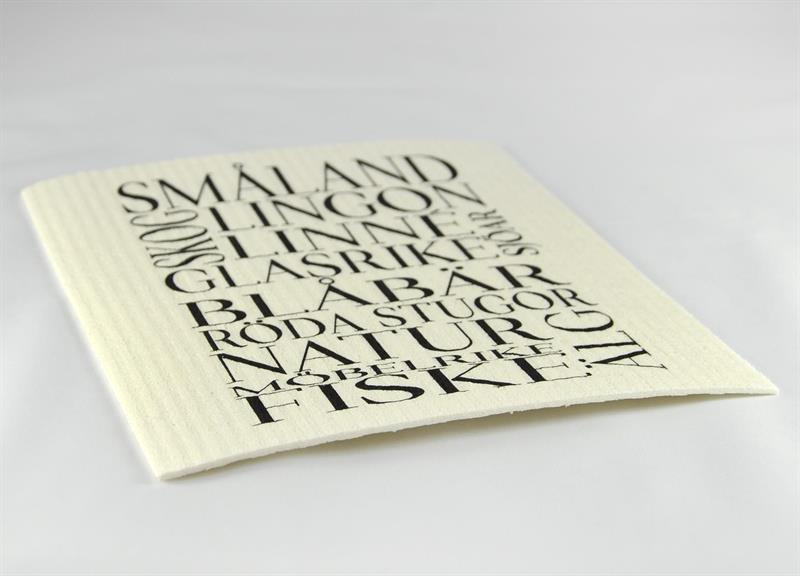 SMÅLAND
SKOG
LINGON
LINNE
SJÖAR
GLASRIKE
BLÅBÄR
RÖDA STUGOR
NATUR
ÄLG
MÖBELRIKE
FISKE